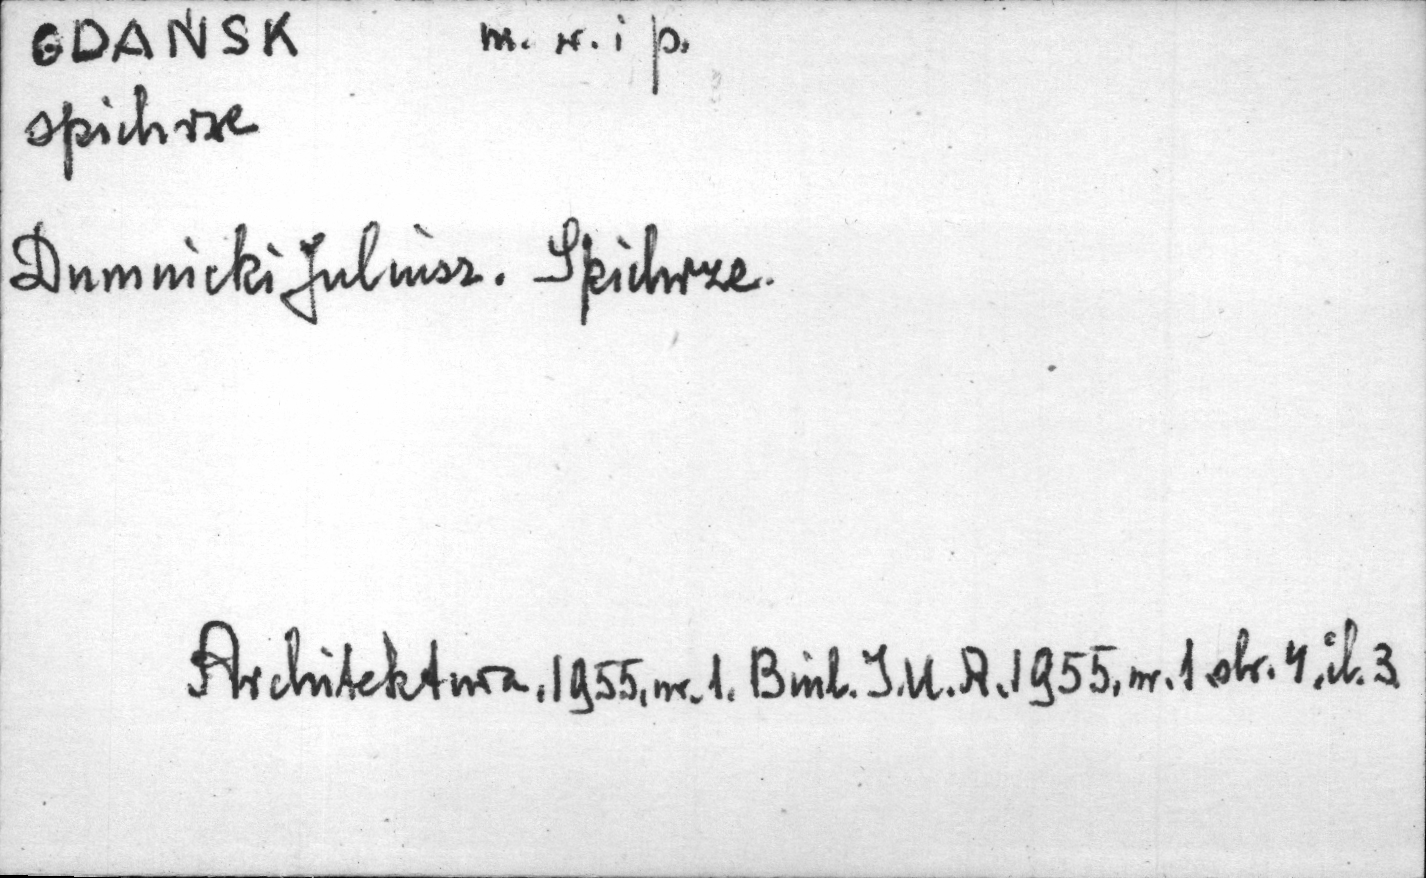 GDAŃSK m. w. i p.
spichrze
Dumnicki Juliusz. Spichrze.
Architektura, 1955, nr. 1. Biul. I.U.A. 1955, nr. 1 str. 4, il. 3